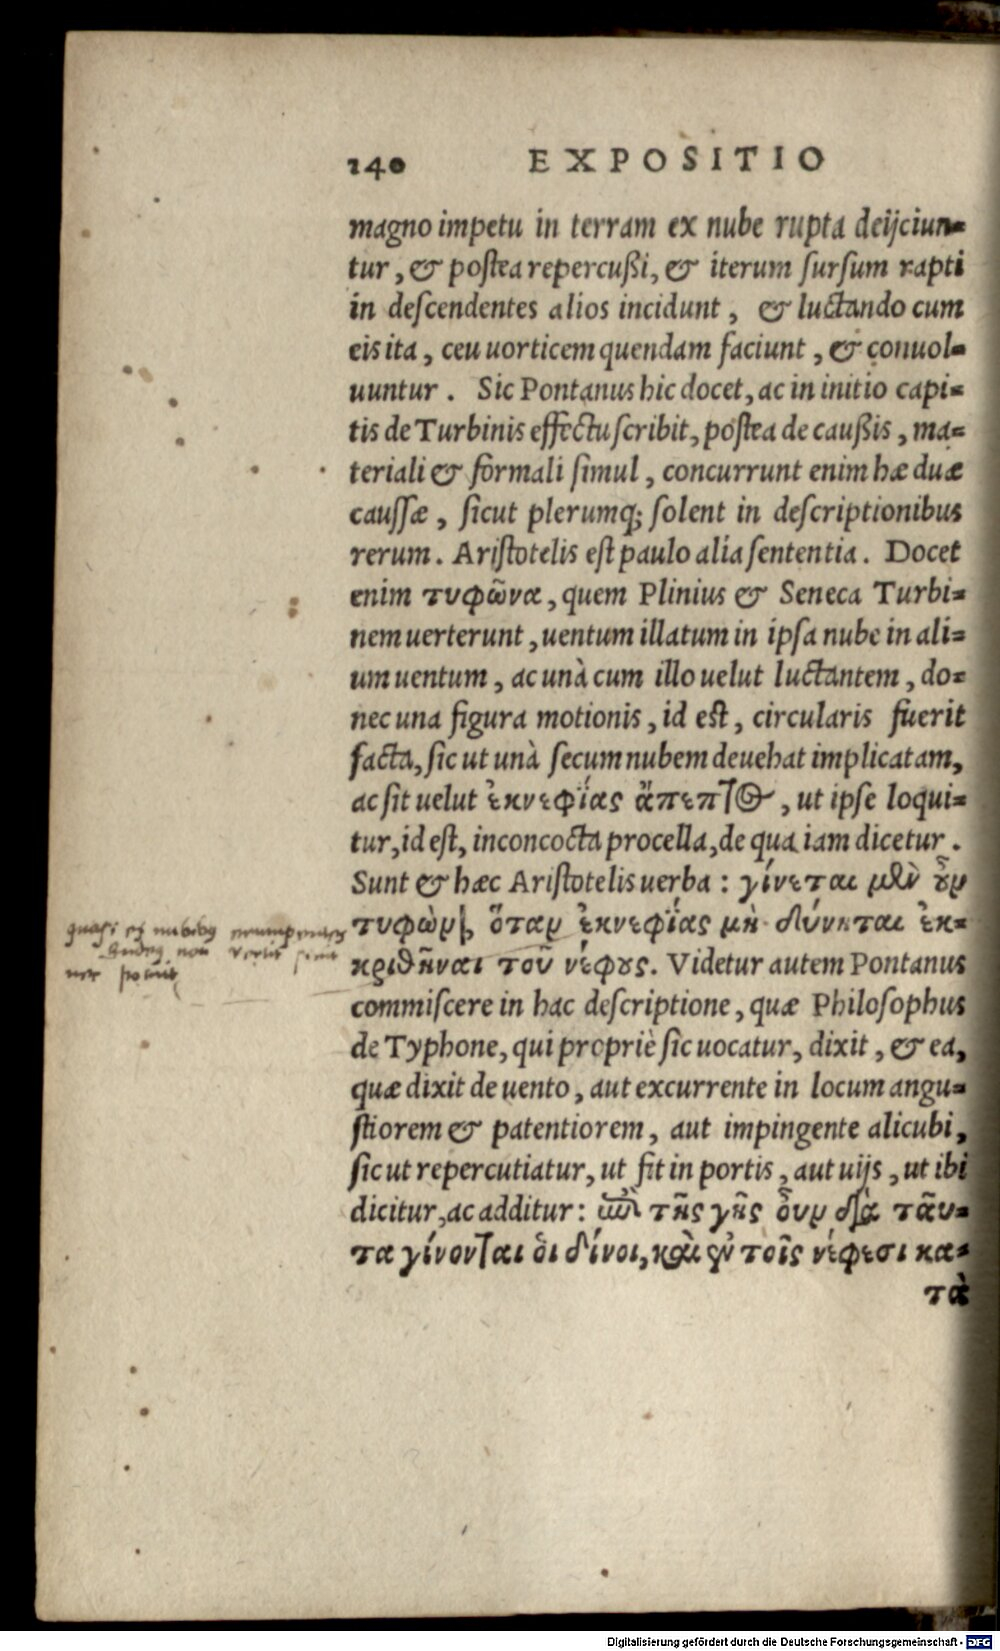 140 EXPOSITIO
magno impetu in terram ex nube rupta deijciun-
tur, & postea repercußi, & iterum sursum rapti
in descendentes alios incidunt, & luctando cum
eis ita, ceu uorticem quendam faciunt, & conuol-
uuntur. Sic Pontanus hic docet, ac in initio capi-
tis de Turbinis effectu scribit, postea de caußis, ma-
teriali & formali simul, concurrunt enim hæ duæ
caussæ, sicut plerumq; solent in descriptionibus
rerum. Aristotelis est paulo alia sententia. Docet
enim τυφῶνα, quem Plinius & Seneca Turbi-
nem uerterunt, uentum illatum in ipsa nube in ali-
um uentum, ac unà cum illo uelut luctantem, do-
nec una figura motionis, id est, circularis fuerit
facta, sic ut unà secum nubem deuehat implicatam,
ac sit uelut ἐκνεφίας ἄπεπτος, ut ipse loqui-
tur, id est, inconcocta procella, de qua iam dicetur.
Sunt & hæc Aristotelis uerba: γίνεται μὲν οὖν
τυφὼν, ὅταν ἐκνεφίας μὴ δύνηται ἐκ-
κριθῆναι τοῦ νέφους. Videtur autem Pontanus
commiscere in hac descriptione, quæ Philosophus
de Typhone, qui propriè sic uocatur, dixit, & ea,
quæ dixit de uento, aut excurrente in locum angu-
stiorem & patentiorem, aut impingente alicubi,
sic ut repercutiatur, ut fit in portis, aut uijs, ut ibi
dicitur, ac additur: ἐπὶ τῆς γῆς οὖν διὰ ταῦ-
τα γίνονται οἱ δίνοι, καὶ ἐν τοῖς νέφεσι κα-
τὰ
quasi ex nubibus
non
Digitalisierung gefördert durch die Deutsche Forschungsgemeinschaft - DFG